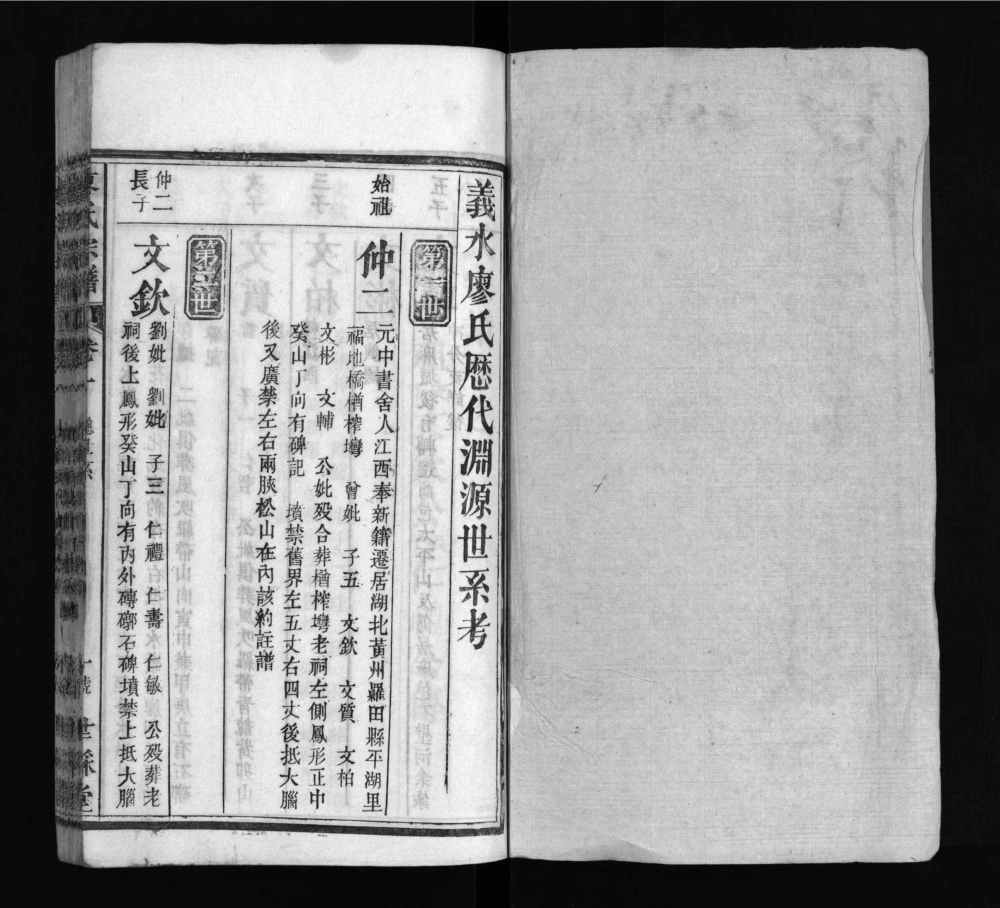 義水廖氏歷代淵源世系考
第一世
始祖
仲二
元中書舍人江西奉新籍遷居湖北黃州羅田縣平湖里
福地橋楢榨塆　曾妣　子五　文欽　文質　文柏
文彬　文輔　公妣歿合葬楢榨塆老祠左側鳳形正中
癸山丁向有碑記　墳禁舊界左五丈右四丈後抵大腦
後又廣禁左右兩腴松山在內該約註譜
第二世
仲二
長子
文欽
劉妣　劉妣　子三　仁禮　仁壽　仁敏　公歿葬老
祠後上鳳形癸山丁向有內外磚廓石碑墳禁上抵大腦
氏宗譜
卷十
世綵堂